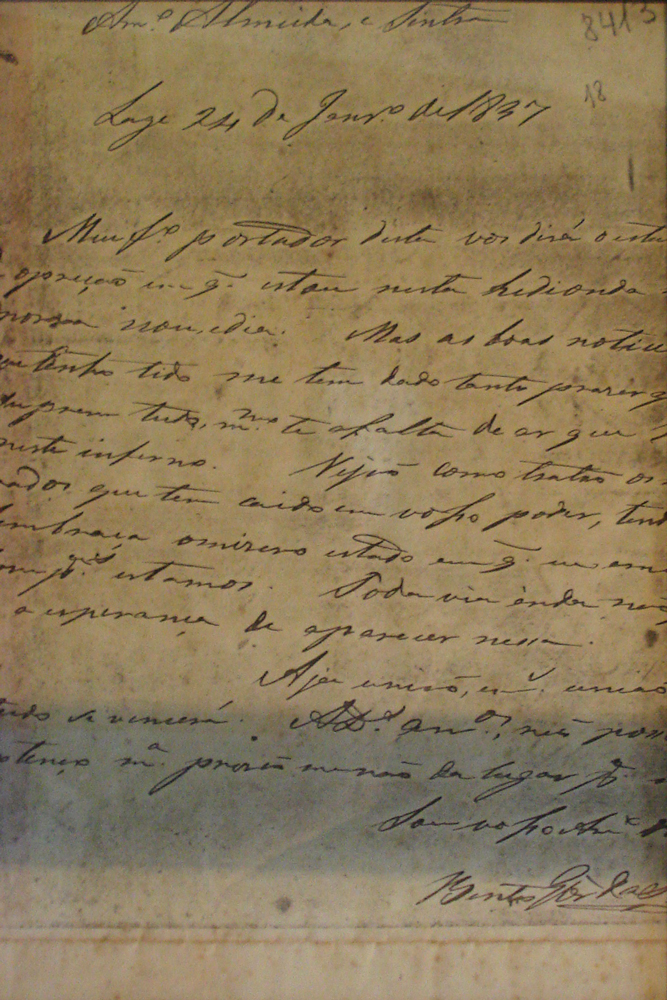 Am.º Almeida, e Sintra
8413
18
Lage 24 de Janr.º de 1837
Meu f.º portador desta vos dirá o esta
opreção em q̃ estou nesta hedionda
nossa
Mas as boas notici
tenho tido me tem dado tanto prazer q
tudo, m.mo te a falta de ar que
neste inferno. Vejão como tratão os
ados que tem caido em vosso poder, tend
embrança o mizero estado em q̃
estamos. Toda via inda
a esperança de aparecer nessa.
Aja união, união
tudo se vencerá. AD.s am.os, não
m.a prizão não da lugar p.
Sou vosso Am.º
Bento Glz da S